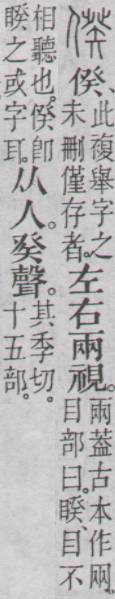 㑧、此複舉字之未刪僅存者。左右兩視。兩葢古本作㒳。目部曰。睽、目不
相聽也。㑧卽睽之或字耳。从人。癸聲。其季切。十五部。